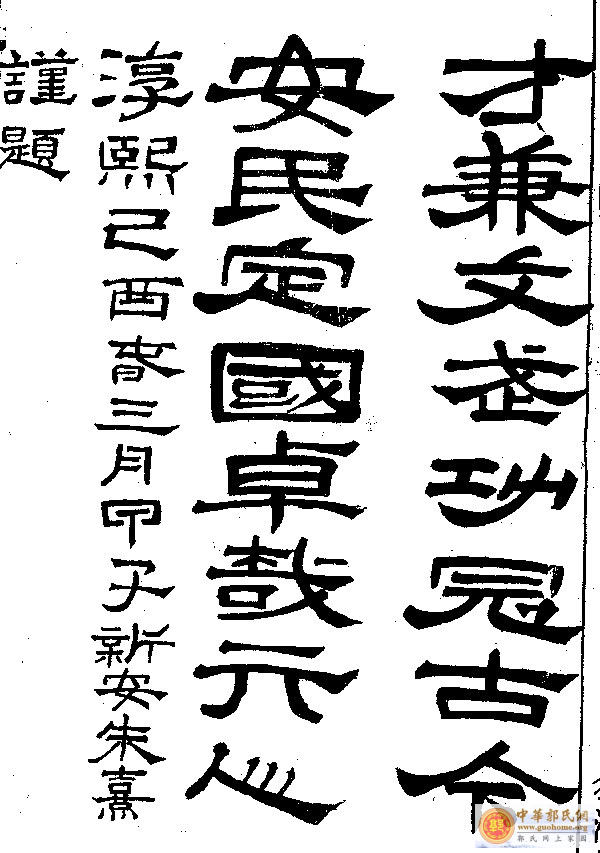 才兼文武功冠古今
安民定國卓哉元心
淳熙己酉春三月甲子新安朱熹
謹題
中華郭氏網
www.guohome.org
郭氏网上家园